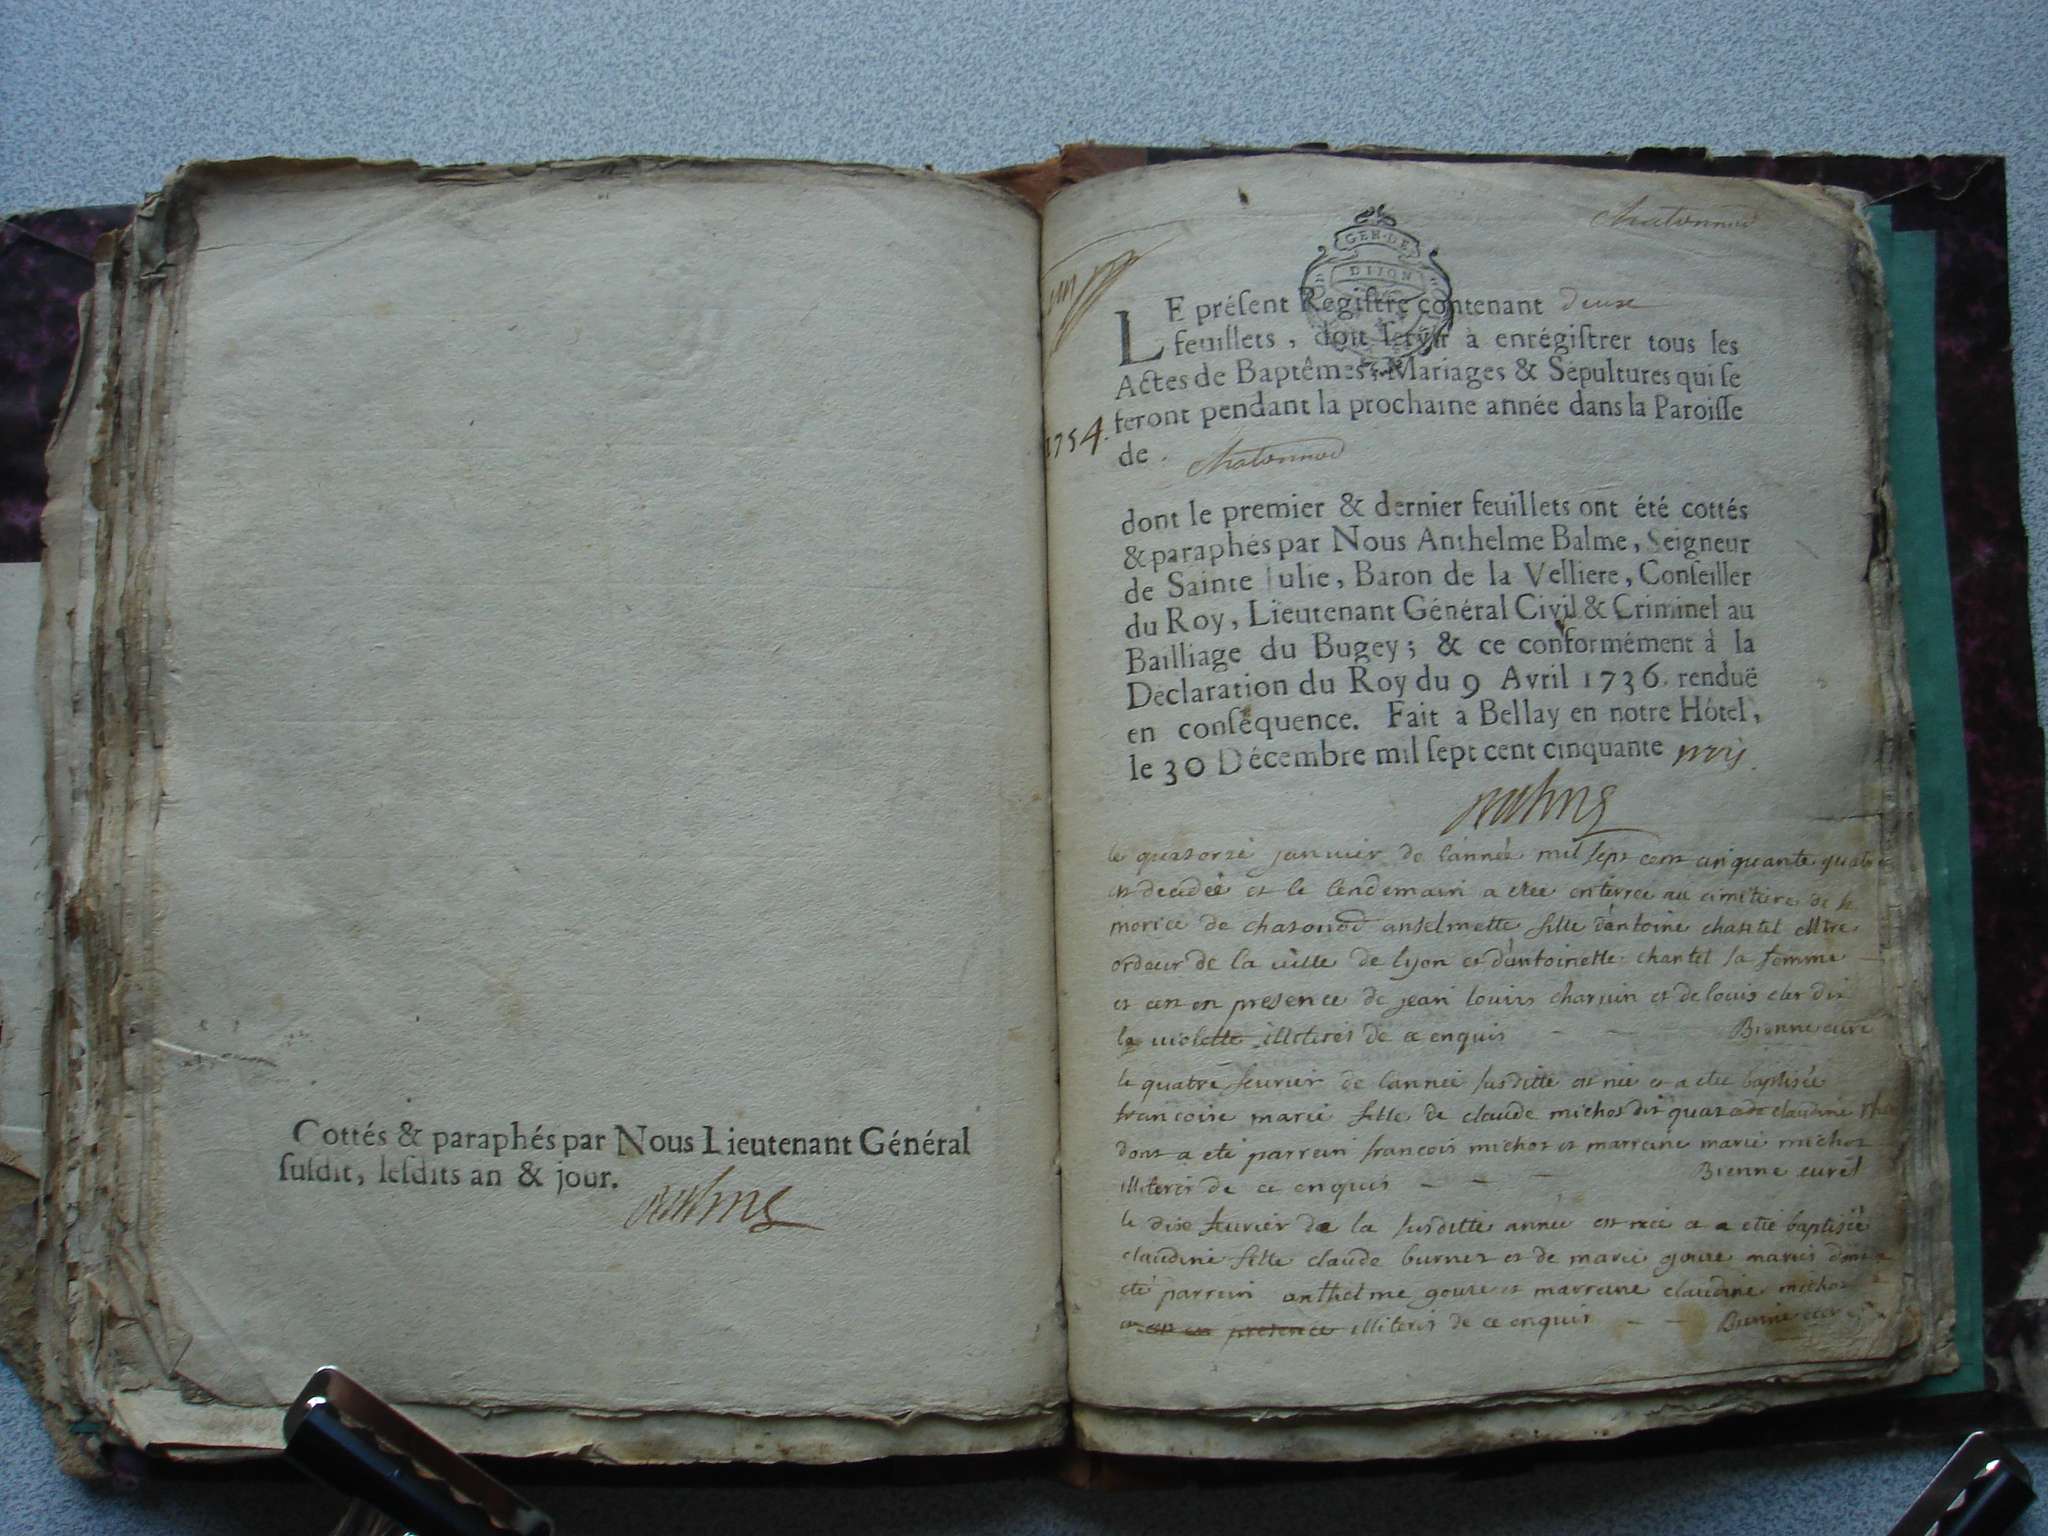 Cottés & paraphés par Nous Lieutenant Général
ſuſdit, leſdits an & jour.
Chatonnod
GEN. DE
DIJON
LE préſent Regiſtre contenant deux
feuillets, doit ſervir à enrégiſtrer tous les
Actes de Baptêmes, Mariages & Sépultures qui ſe
feront pendant la prochaine année dans la Paroiſſe
1754.
de Chatonnod
dont le premier & dernier feuillets ont été cottés
& paraphés par Nous Anthelme Balme, Seigneur
de Sainte Julie, Baron de la Velliere, Conſeiller
du Roy, Lieutenant Général Civil & Criminel au
Bailliage du Bugey; & ce conformément à la
Déclaration du Roy du 9 Avril 1736. renduë
en conſéquence. Fait à Bellay en notre Hôtel,
le 30 Décembre mil ſept cent cinquante trois.
le quatorze janvier de l'année mil sept cent cinquante quatre
est decedée et le lendemain a etee enterree au cimitiere de st
morice de chatonod anselmette fille d'antoine chastel
de la ville de lyon et d'antoinette chastel sa femme
et cest en presence de jean louis charvin et de louis dit
la violette illiteres de ce enquis - - Bienne curé
le quatre fevrier de l'année susditte est née et a etee baptisée
francoise marie fille de claude michot dit claudine
dont a eté parrein francois michot et marreine marie michot
illiteres de ce enquis - - - Bienne curé
le dixe fevrier de la susditte année est née et a etté baptisée
claudine fille claude burnet et de marie goure mariés dont a
eté parrein anthelme goure et marreine claudine michot
est en presence illiteres de ce enquis - - Bienne curé